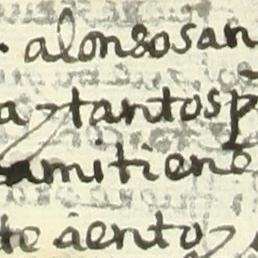 . alonso san
a y tantos p
a mi tiene
te aento y